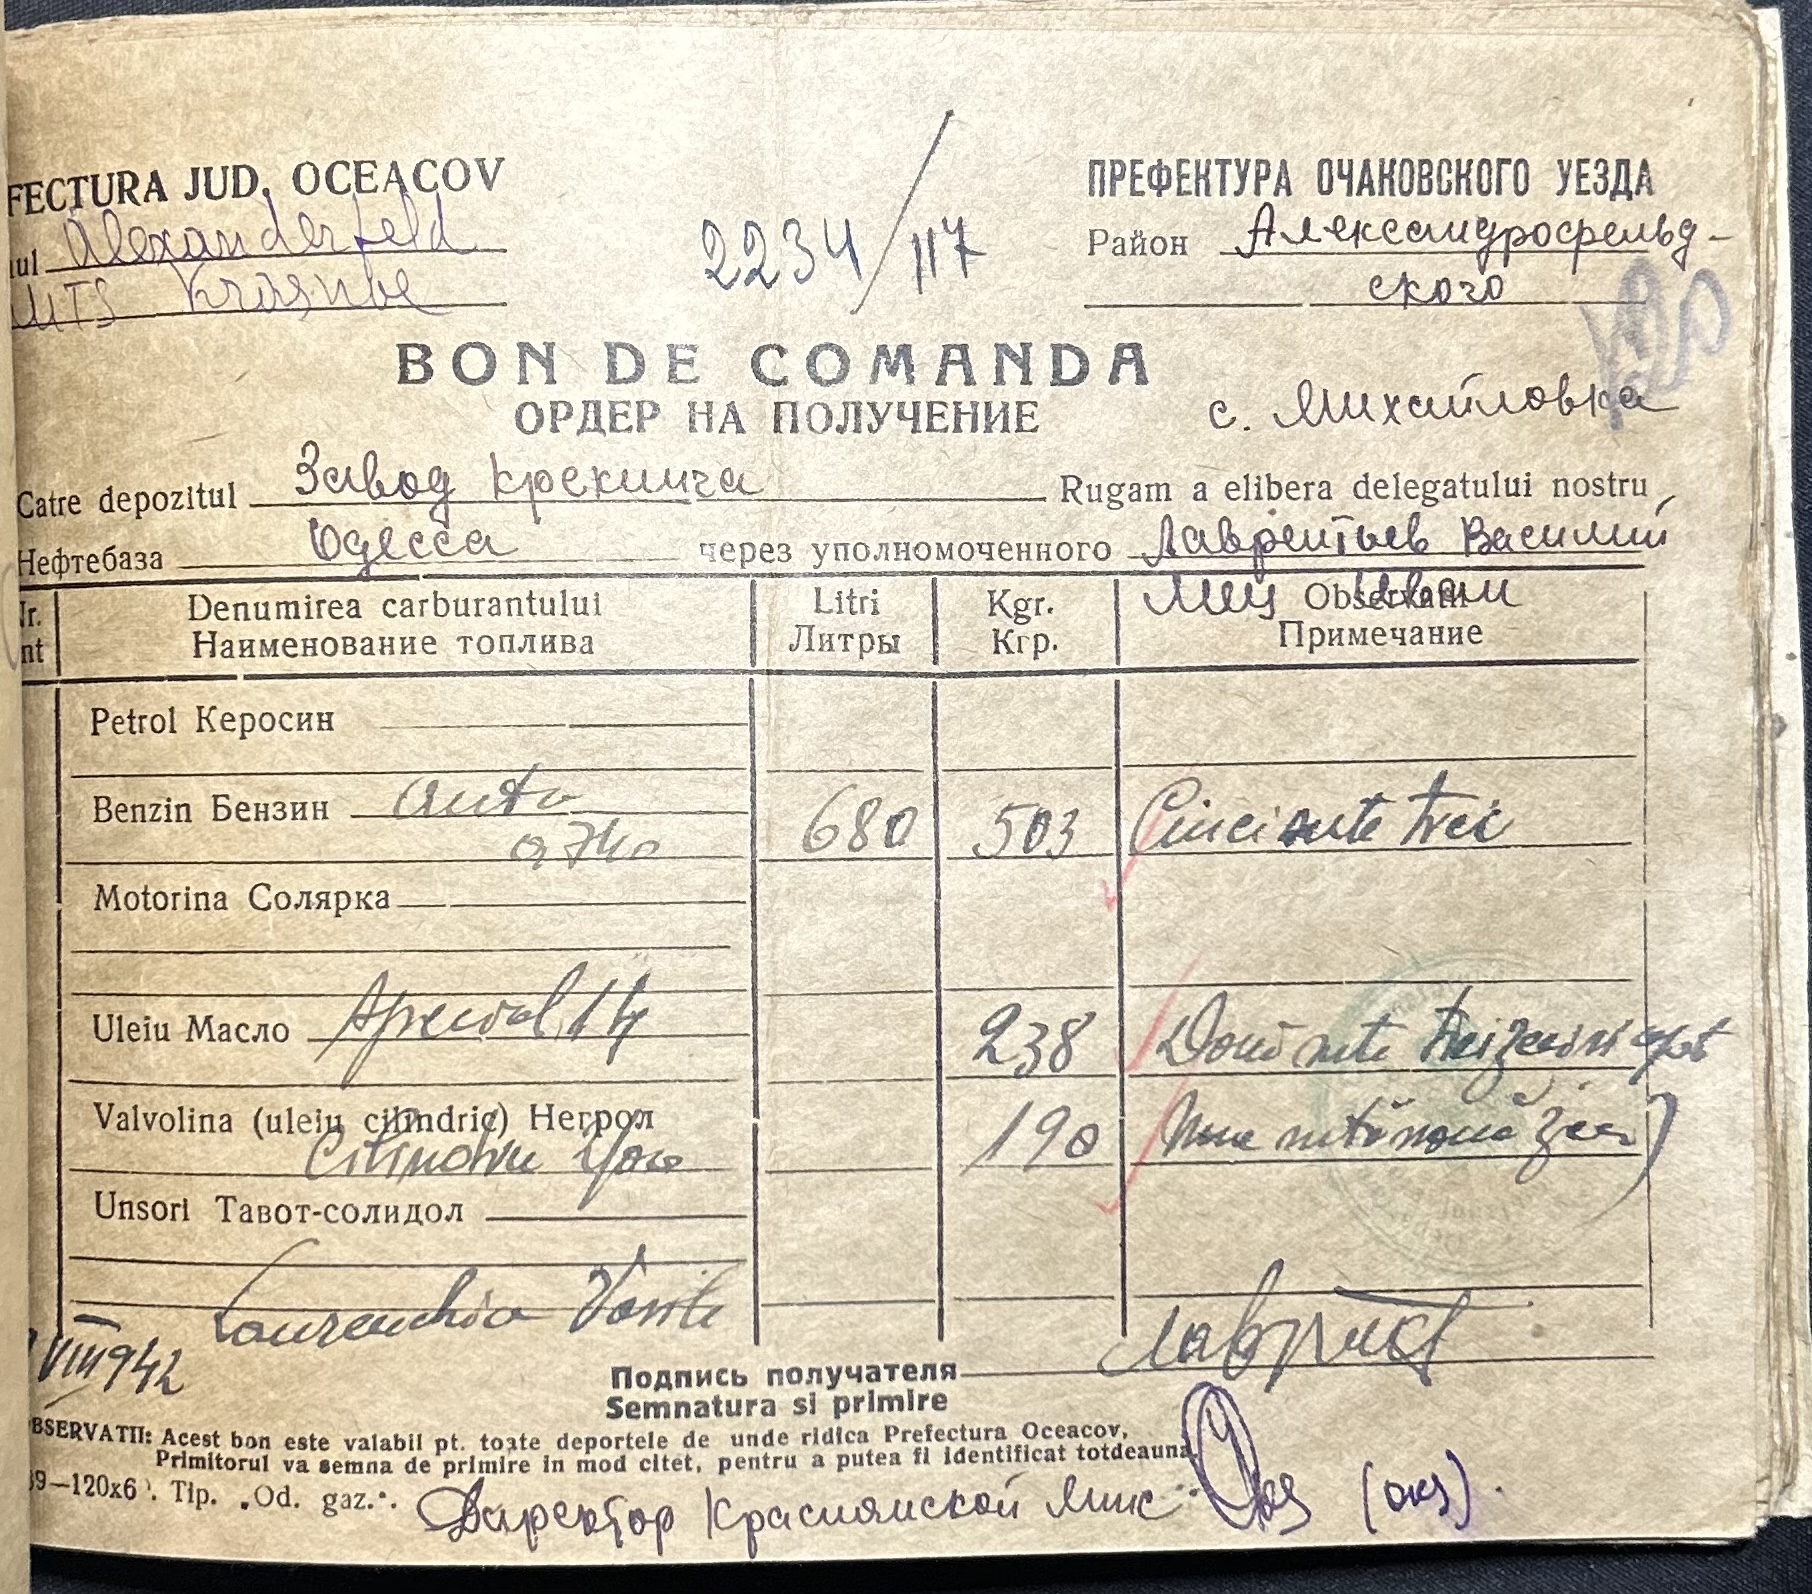 FECTURA JUD. OCEACOV
ПРЕФЕКТУРА ОЧАКОВСКОГО УЕЗДА
ul Alexanderfeld
2234/117
Район Александрофельд-
MTS
ского
BON DE COMANDA
ОРДЕР НА ПОЛУЧЕНИЕ
с. Михайловка
Catre depozitul Завод Крекинга Rugam a elibera delegatului nostru
Нефтебаза Одесса через уполномоченного Лаврентьев Василий
Observatii
Nr. Denumirea carburantului Litri Kgr.
nt Наименование топлива Литры Кгр. Примечание
Petrol Керосин
Benzin Бензин auto
0740 680 503 Cinci sute trei
Motorina Солярка
Uleiu Масло special 14 238 Două sute treizeci si opt
Valvolina (uleiu cilindric) Негрол
Cilindru 190 una sută nouă zeci
Unsori Тавот-солидол
Vasile
VIII 942
Подпись получателя
Semnatura si primire
BSERVATII: Acest bon este valabil pt. toate deportele de unde ridica Prefectura Oceacov,
Primitorul va semna de primire in mod citet, pentru a putea fi identificat totdeauna
39—120x6 . Tip. „Od. gaz.“.
Директор Краснянской Мтс